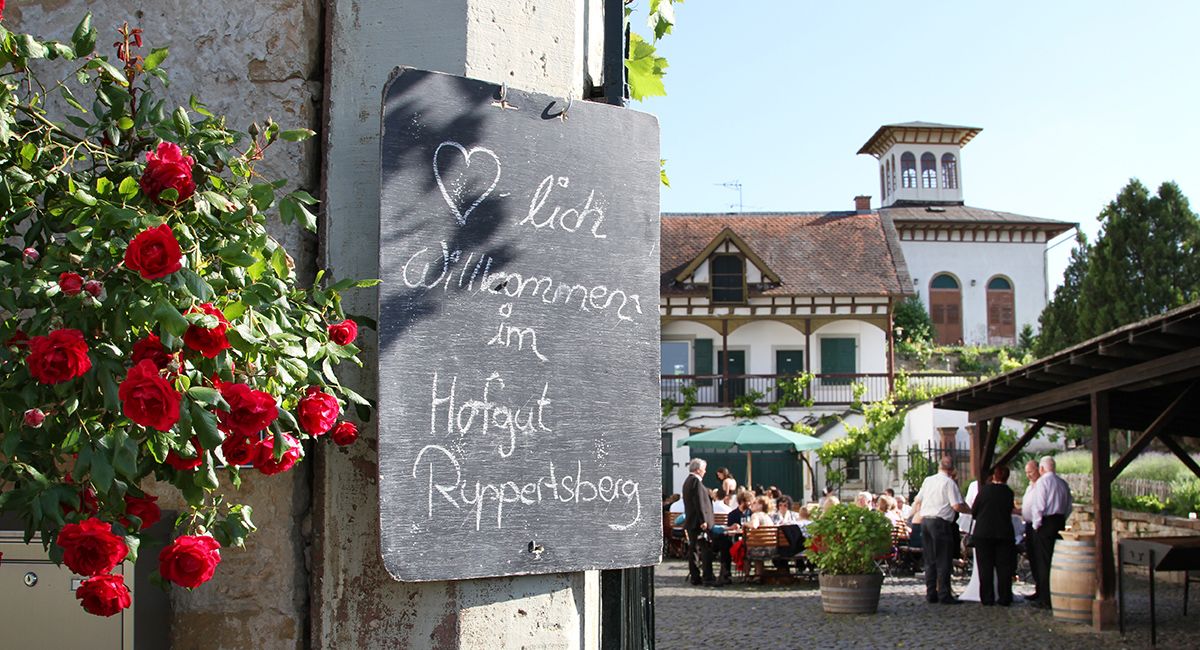 ♡-lich
Willkommen
im
Hofgut
Ruppertsberg